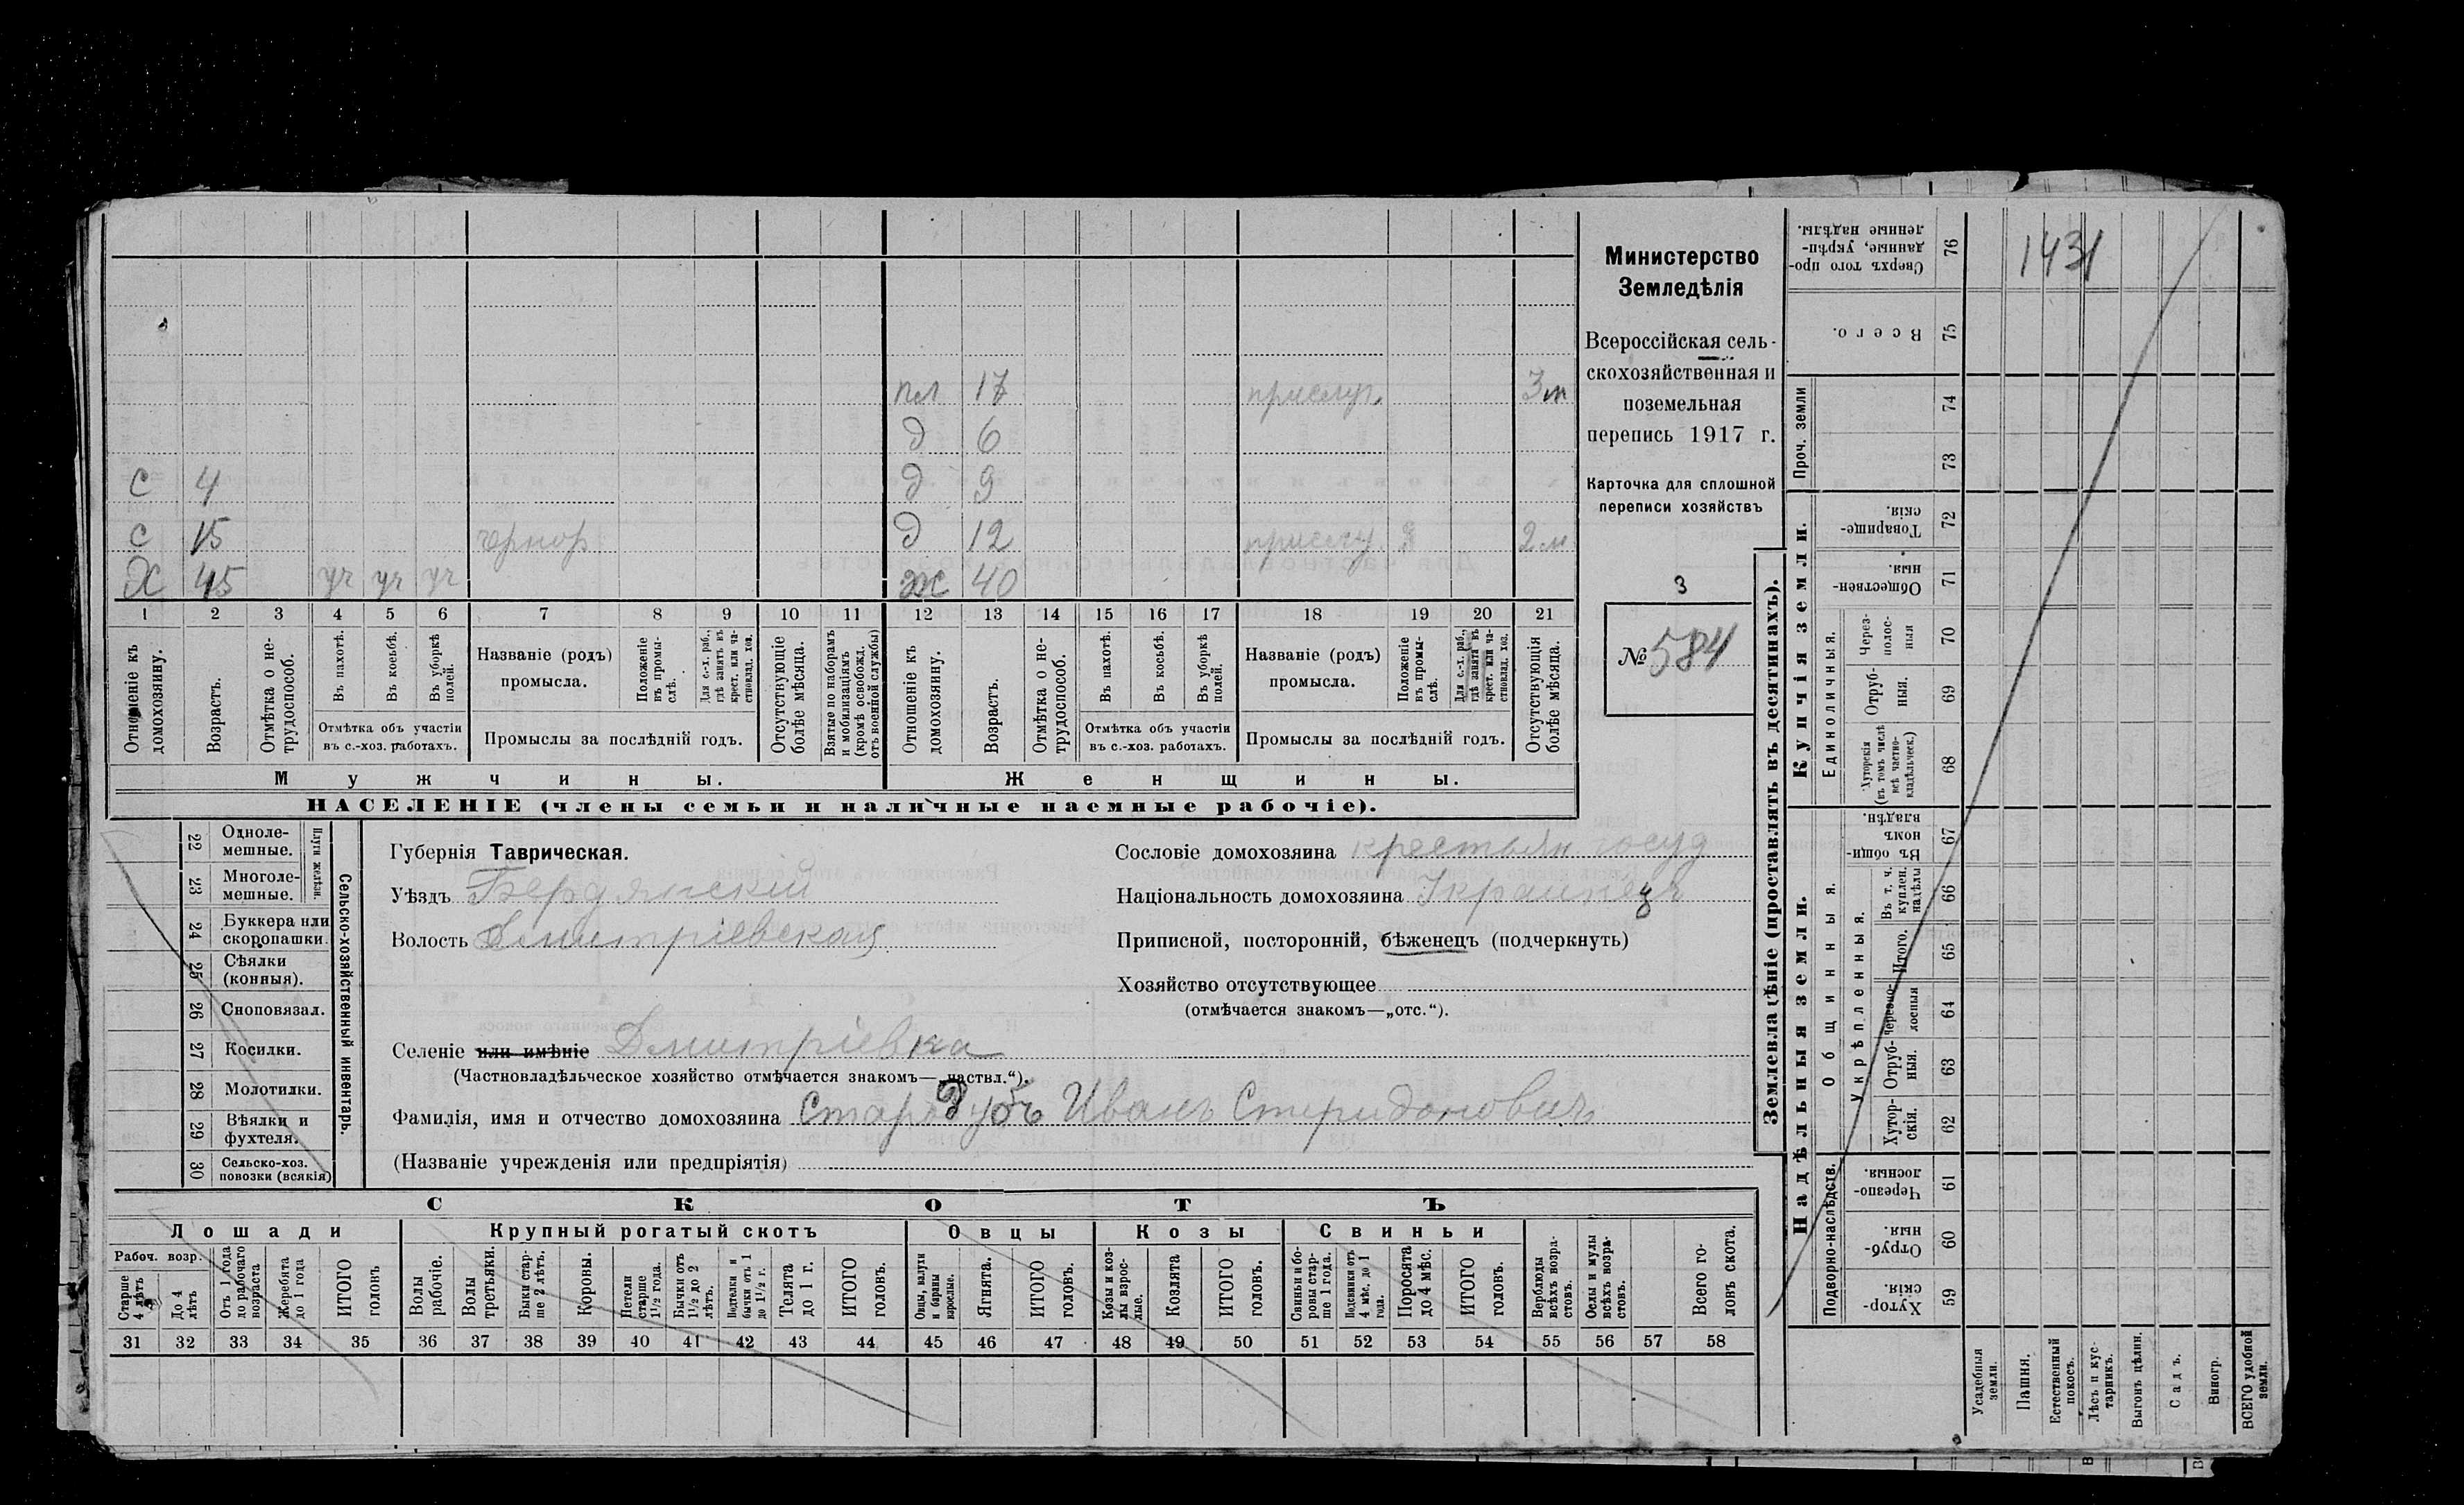 пл 17 прислуг. 3 м
д 6
с 4 д 9
с 15 чернор д 12 прислуг. 2 м
Х 45 уч уч уч ж 40
1 2 3 4 5 6 7 8 9 10 11 12 13 14 15 16 17 18 19 20 21
Отношеніе къ домохозяину.
Возрастъ.
Отмѣтка о не-трудоспособ.
Въ пахотѣ.
Въ косьбѣ.
Въ уборкѣ полей.
Отмѣтка объ участіи
въ с.-хоз. работахъ.
Названіе (родъ)
промысла.
Положеніе въ промы-слѣ.
Для с.-х. раб., гдѣ занятъ въ крест. или ча-стновлад. хоз.
Промыслы за послѣдній годъ.
Отсутствующіе болѣе мѣсяца.
Взятые по наборамъ и мобилизаціямъ (кромѣ освобожд. отъ военной службы)
Отношеніе къ домохозяину.
Возрастъ.
Отмѣтка о не-трудоспособ.
Въ пахотѣ.
Въ косьбѣ.
Въ уборкѣ полей.
Отмѣтка объ участіи
въ с.-хоз. работахъ.
Названіе (родъ)
промысла.
Положеніе въ промы-слѣ.
Для с.-х. раб., гдѣ заняты въ крест. или ча-стновлад. хоз.
Промыслы за послѣдній годъ.
Отсутствующія болѣе мѣсяца.
Мужчины. Женщины.
НАСЕЛЕНІЕ (члены семьи и наличные наемные рабочіе).
Министерство
Земледѣлія
Всероссійская сель-
скохозяйственная и
поземельная
перепись 1917 г.
Карточка для сплошной
переписи хозяйствъ
3
№ 584
22 Одноле-мешные.
23 Многоле-мешные.
Плуги желѣзн.
24 Буккера или скоропашки
25 Сѣялки (конныя).
26 Сноповязал.
27 Косилки.
28 Молотилки.
29 Вѣялки и фухтеля.
30 Сельско-хоз. повозки (всякія)
Сельско-хозяйственный инвентарь.
Губернія Таврическая.
Уѣздъ Бердянскій
Волость Дмитріевская
Селеніе или имѣніе Дмитріевка
(Частновладѣльческое хозяйство отмѣчается знакомъ—„частвл.“).
Фамилія, имя и отчество домохозяина Стародубъ Иванъ Спиридоновичъ
(Названіе учрежденія или предпріятія)
Сословіе домохозяина крестьян госуд
Національность домохозяина Украинецъ
Приписной, посторонній, бѣженецъ (подчеркнуть)
Хозяйство отсутствующее
(отмѣчается знакомъ—„отс.“).
СКОТЪ
Лошади Крупный рогатый скотъ Овцы Козы Свиньи
Рабоч. возр.
Старше 4 лѣтъ
До 4 лѣтъ
Отъ 1 года до рабочаго возраста
Жеребята до 1 года
ИТОГО головъ
Волы рабочіе.
Волы третьяки.
Быки стар-ше 2 лѣтъ.
Коровы.
Нетели старше 1½ года.
Бычки отъ 1½ до 2 лѣтъ.
Подтелки и бычки отъ 1 до 1½ г.
Телята до 1 г.
ИТОГО головъ.
Овцы, валухи и бараны взрослые.
Ягнята.
ИТОГО головъ.
Козы и коз-лы взрос-лые.
Козлята
ИТОГО головъ.
Свиньи и бо-ровы стар-ше 1 года.
Подсвинки отъ 4 мѣс. до 1 года.
Поросята до 4 мѣс.
ИТОГО головъ.
Верблюды всѣхъ возра-стовъ.
Ослы и мулы всѣхъ возра-стовъ.
Всего го-ловъ скота.
31 32 33 34 35 36 37 38 39 40 41 42 43 44 45 46 47 48 49 50 51 52 53 54 55 56 57 58
Землевладѣніе (проставлять въ десятинахъ).
Надѣльныя земли. Купчія земли. Проч. земли
Подворно-наслѣдств.
Общинныя.
Укрѣпленныя.
Единоличныя.
Сверхъ того про-данные, укрѣп-ленные надѣлы. 76
1431
Всего. 75
74
73
Товарище-скія. 72
Обществен-ныя. 71
Через-полос-ныя 70
Отруб-ныя. 69
Хуторскія (въ томъ числѣ всѣ частно-владѣльческ.) 68
Въ общин-номъ владѣн. 67
Въ т. ч. куплен. надѣлы 66
Итого. 65
Черезпо-лосныя 64
Отруб-ныя. 63
Хутор-скія. 62
Черезпо-лосныя. 61
Отруб-ныя. 60
Хутор-скія. 59
Усадебныя земли.
Пашня.
Естественный покосъ.
Лѣсъ и кус-тарникъ.
Выгонъ цѣлин.
Садъ.
Виногр.
ВСЕГО удобной земли.